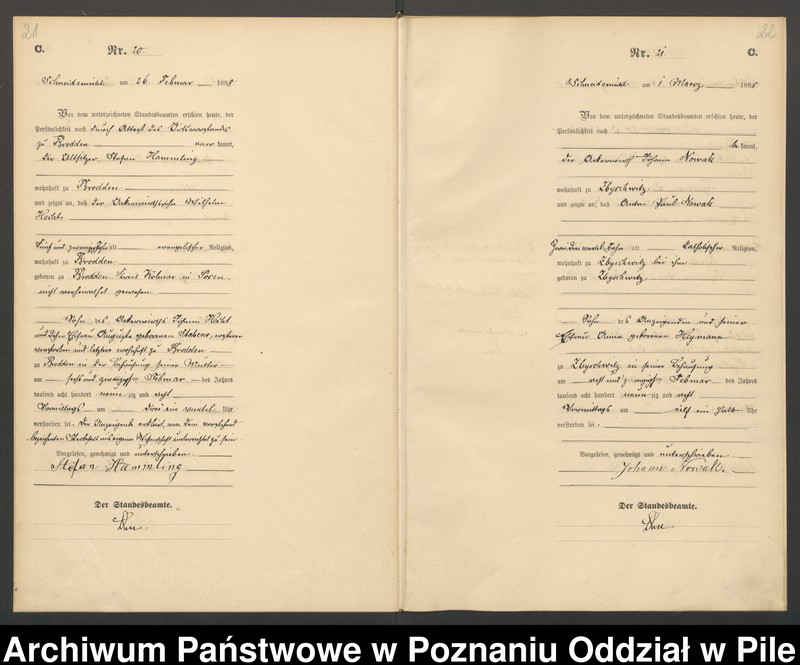 21
C.
Nr. 20.
Schneidemühl am 26 Februar 1898
Vor dem unterzeichneten Standesbeamten erschien heute, der
Persönlichkeit nach durch Attest des Ortsvorstands
zu Brodden anerkannt,
der Altsitzer Stefan Hammling
wohnhaft zu Brodden
und zeigte an, daß der Ackerwirthssohn Wilhelm
Heldt
fünf und zwanzig Jahr alt evangelischer Religion,
wohnhaft zu Brodden
geboren zu Brodden Kreis Kolmar in Posen
nicht verheirathet gewesen
Sohn des Ackerwirths Johann Heldt
und dessen Ehefrau Auguste geborenen Stabenow, ersterer
verstorben und letztere wohnhaft zu Brodden
zu Brodden in der Behausung seiner Mutter
am sechs und zwanzigsten Februar des Jahres
tausend acht hundert neunzig und acht
Vormittags um drei ein viertel Uhr
verstorben sei. Der Anzeigende erklärt, von dem vorstehend
bezeichneten Sterbefall aus eigener Wissenschaft unterrichtet zu sein
Vorgelesen, genehmigt und unterschrieben
Stefan Hammling
Der Standesbeamte.
22
Nr. 21. C.
Schneidemühl am 1 Maerz 1898
Vor dem unterzeichneten Standesbeamten erschien heute, der
Persönlichkeit nach
bekannt,
der Ackerwirth Johann Nowak
wohnhaft zu Zbyschwitz
und zeigte an, daß Anton Paul Nowak
Jahr alt katholischer Religion,
wohnhaft zu Zbyschwitz bei ihm
geboren zu Zbyschwitz
Sohn des Anzeigenden und seiner
Ehefrau Anna geborenen Heymann
zu Zbyschwitz in seiner Behausung
am acht und zwanzigsten Februar des Jahres
tausend acht hundert neunzig und acht
Vormittags um elf ein halb Uhr
verstorben sei.
Vorgelesen, genehmigt und unterschrieben
Johann Nowak.
Der Standesbeamte.
Archiwum Państwowe w Poznaniu Oddział w Pile